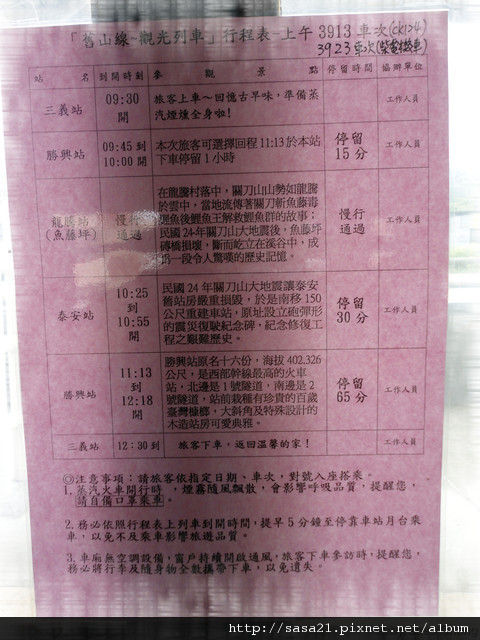 「舊山線~觀光列車」行程表-上午3913車次(CK124)
3923車次(柴電機車)
站 名 到開時刻 參觀景點 停留時間 協辦單位
三義站 09:30 開 旅客上車～回憶古早味，準備蒸
汽煙燻全身啦! 工作人員
勝興站 09:45 到 10:00 開 本次旅客可選擇回程11:13於本站
下車停留1小時 停留 15分 工作人員
龍騰站 (魚藤坪) 慢行 通過 在龍騰村落中，關刀山山勢如龍騰
於雲中，當地流傳著關刀斬魚藤毒
鯉魚後鯉魚王解救鯉魚群的故事；
民國24年關刀山大地震後，魚藤坪
磚橋損壞，斷而屹立在溪谷中，成
為一段令人驚嘆的歷史記憶。 慢行 通過 工作人員
泰安站 10:25 到 10:55 開 民國24年關刀山大地震讓泰安
舊站房嚴重損毀，於是南移150
公尺重建車站，原址設立砲彈形
的震災復駛紀念碑，紀念修復工
程之艱難歷史。 停留 30分 工作人員
勝興站 11:13 到 12:18 開 勝興站原名十六份，海拔402.326
公尺，是西部幹線最高的火車
站，北邊是1號隧道，南邊是2
號隧道，站前栽種有珍貴的百歲
臺灣樟榔，大斜角及特殊設計的
木造站房可愛典雅。 停留 65分 工作人員
三義站 12:30到 旅客下車，返回溫馨的家! 工作人員
◎注意事項：請旅客依指定日期、車次，對號入座搭乘。
1.蒸汽火車開行時，煙霧隨風飄散，會影響呼吸品質，提醒您，
請自備口罩乘車。
2.務必依照行程表上列車到開時間，提早5分鐘至停靠車站月台乘
車，以免不及乘車影響旅遊品質。
3.車廂無空調設備，窗戶持續開啟通風，旅客下車參訪時，提醒您，
務必將行李及隨身物全數攜帶下車，以免遺失。
http://sasa21.pixnet.net/album